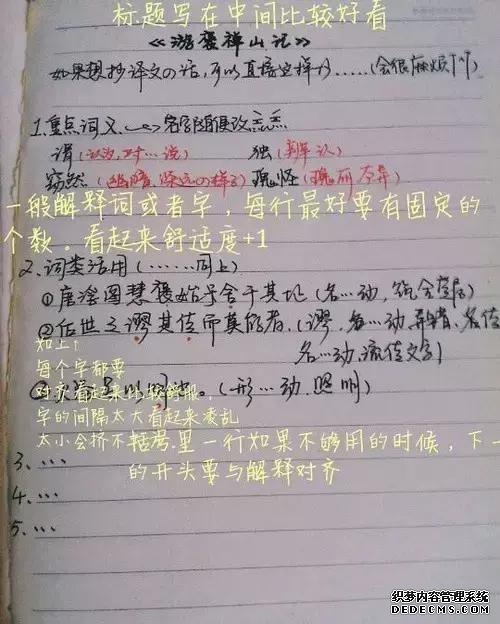 标题写在中间比较好看
《游褒禅山记》
如果想抄译文の话,可以直接空格仂……(会很麻烦个)
1.重点词义
谓(认为,对…说) 独(辨认)
窈然(幽暗,深远の样子) 瑰怪
一般解释词或者字,每行最好要有固定的
个数。看起来舒适度+1
2.词类活用(……同上)
①唐浮图慧褒始于舍于其址(名…动,
②后世之谬其传而莫能名者.(谬,名…动 弄错、名传
名…动.流传文字)
如上↑
每个字都要
对齐看起来比较舒服。
(形…动.照明)
字的间隔太大看起来凌乱
太小会挤不 括号里一行如果不够用的时候,下一
的开头要与解释对齐
3.…
4.…
5.…
织梦内容管理系统
DEDECMS.COM